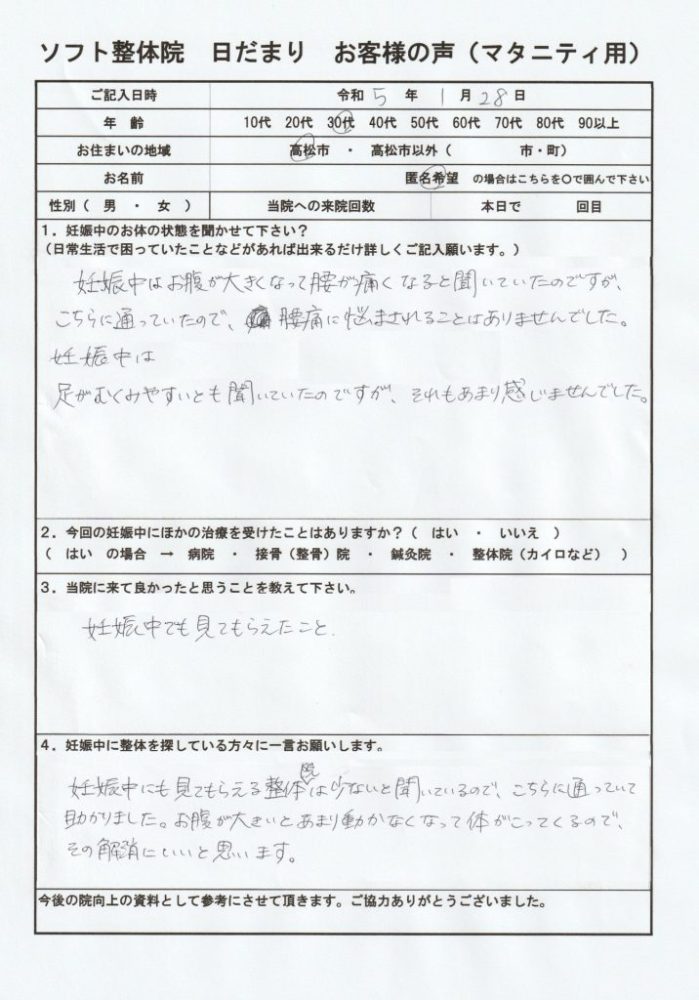 ソフト整体院　日だまり　お客様の声（マタニティ用）
ご記入日時　令和 5 年 1 月 28 日
年　齢　10代　20代　30代　40代　50代　60代　70代　80代　90以上
お住まいの地域　高松市　・　高松市以外（　　　　市・町）
お名前　匿名希望　の場合はこちらを〇で囲んで下さい
性別（　男　・　女　）　当院への来院回数　本日で　　　回目
１．妊娠中のお体の状態を聞かせて下さい？
（日常生活で困っていたことなどがあれば出来るだけ詳しくご記入願います。）
妊娠中はお腹が大きくなって腰が痛くなると聞いていたのですが、
こちらに通っていたので、腰痛に悩まされることはありませんでした。
妊娠中は
足がむくみやすいとも聞いていたのですが、それもあまり感じませんでした。
２．今回の妊娠中にほかの治療を受けたことはありますか？（　はい　・　いいえ　）
（　はい　の場合　→　病院　・　接骨（整骨）院　・　鍼灸院　・　整体院（カイロなど）　）
３．当院に来て良かったと思うことを教えて下さい。
妊娠中でも見てもらえたこと.
４．妊娠中に整体を探している方々に一言お願いします。
妊娠中にも見てもらえる整体院は少ないと聞いているので、こちらに通っていて
助かりました。お腹が大きいとあまり動かなくなって体がこってくるので、
その解消にいいと思います。
今後の院向上の資料として参考にさせて頂きます。ご協力ありがとうございました。